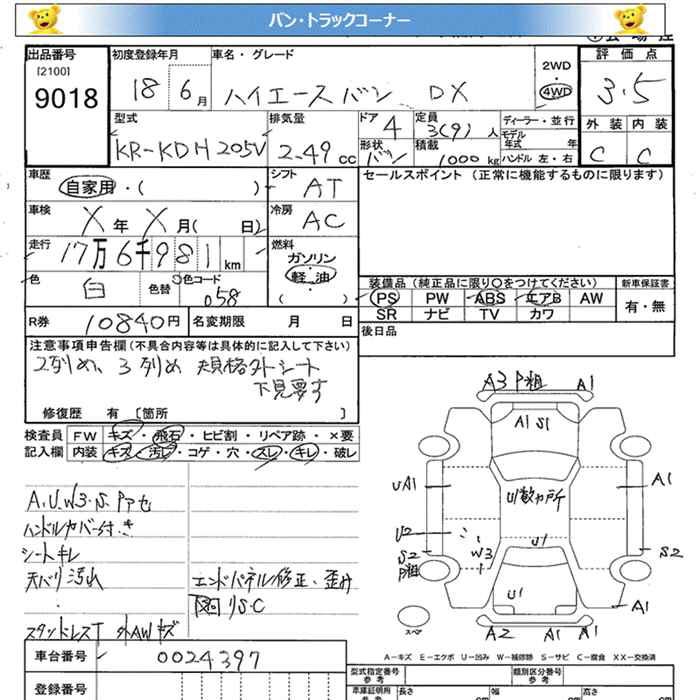 バン・トラックコーナー
出品番号 初度登録年月 車名・グレード 評価点
[2100]
9018
18 6月 ハイエースバン DX 2WD 4WD 3.5
外装 内装
C C
型式 排気量 ドア 定員 ディーラー・並行
KR-KDH205V 2.49cc 4 3(9)人 モデル年式 年
形状 積載 ハンドル 左・右
バン 1000kg
車歴 シフト セールスポイント (正常に機能するものに限ります)
自家用・( ) AT
車検 冷房
X年 X月( 日) AC
走行 燃料
17万6千981km ガソリン
軽油
( )
色 色替 色コード
白 058
装備品 (純正品に限り○をつけてください) 新車保証書
PS PW ABS エアB AW 有・無
SR ナビ TV カワ
R券 10840円 名変期限 月 日
後日品
注意事項申告欄 (不具合内容等は具体的に記入して下さい)
2列め、3列め 規格外シート
下見要す
修復歴 有 [箇所 ]
検査員 FW キズ・飛石・ヒビ割・リペア跡・×要
記入欄 内装 キズ・汚レ・コゲ・穴・スレ・キレ・破レ
A3 P粗 A1
A1 S1
UA1 A1
U数ヵ所
U2 W3 U1
S2 S2
P粗
U1 A1
A2 A1 A1
スペア
A.U.W3.S.Pアセ
ハンドルカバー付き
シートキレ
天バリ汚れ
エンドパネル修正、歪み
スタッドレスT 外AWキズ
A-キズ E-エクボ U-凹み W-補修跡 S-サビ C-腐食 XX-交換済
車台番号 0024397
登録番号
型式指定番号 参考 類別区分番号 参考
車庫証明用 参考 長さ 幅 高さ